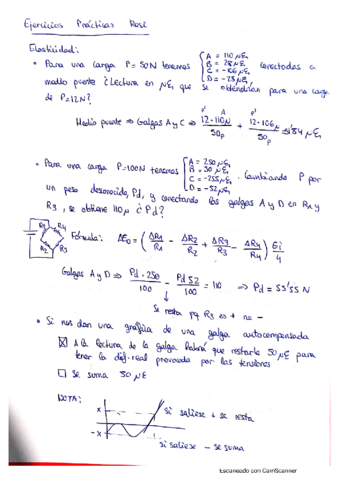 Ejercicios Prácticas Resi
Elasticidad:
• Para una carga P=50N tenemos { A = 110 µE, B = 28 µE, C = -106 µE, D = -28 µE, conectadas a
medio puente ¿Lectura en µE, que se obtendrían para una carga
de P=12N?
Medio puente ⇒ Galgas A y C ⇒ 12·110 / 50 + 12·106 / 50 = 51'84 µE,
P' A P'
P P
• Para una carga P=100N tenemos { A = 250 µE, B = 30 µE, C = -255 µE, D = -52 µE, . Cambiando P por
un peso desconocido, Pd, y conectando las galgas A y D en R1 y
R3, se obtiene 110 µ ¿Pd?
R1 R4
R2 R3
Fórmula: ΔE0 = (ΔR1/R1 - ΔR2/R2 + ΔR3/R3 - ΔR4/R4) Ei/4
Galgas A y D ⇒ Pd·250 / 100 - Pd 52 / 100 = 110 ⇒ Pd = 55'55 N
Se resta pq R3 es + no -
• Si nos dan una gráfica de una galga autocompensada
☒ A la lectura de la galga habrá que restarle 50 µE para
tener la def. real provocada por las tensiones
☐ Se suma 50 µE
NOTA:
x si saliese + se resta
-x
si saliese - se suma
Escaneado con CamScanner